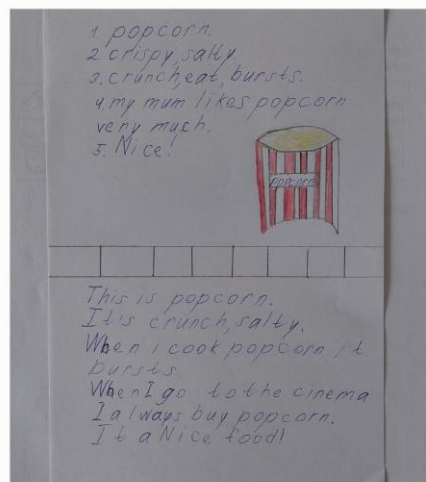 1 popcorn.
2. crispy, salty.
3. crunch, eat, bursts.
4. my mum likes popcorn
very much.
5. Nice!
popcorn
This is popcorn.
It's crunch, salty.
When i cook popcorn it
bursts.
When I go to the cinema
I always buy popcorn.
It a Nice food!